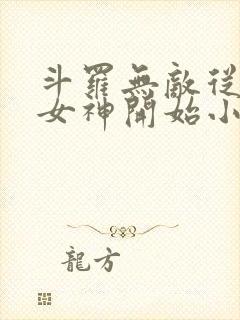 斗羅無敵從
女神開始小
龍方